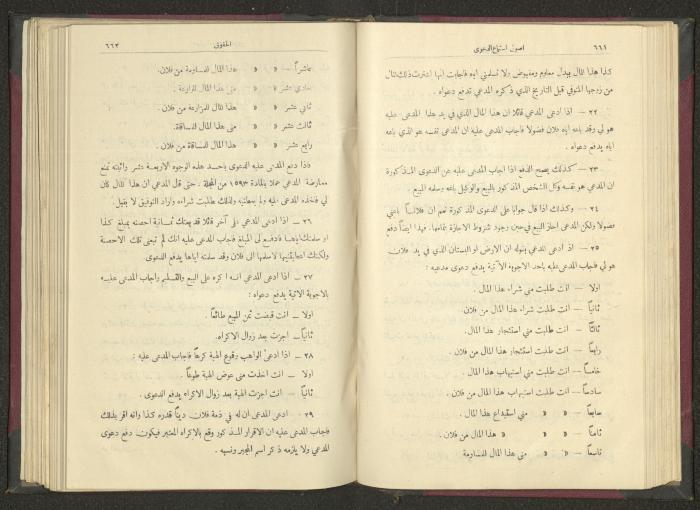 ٦٦١ اصول استماع الدعوى
كذا هذا المال ببدل معلوم ومقبوض ولا تسلمني اياه فاجابت انها اشترت ذلك المال
من زوجها المتوفي قبل التاريخ الذي ذكره المدعي تدفع دعواه .
٢٢ – اذا ادعى المدعي قائلا ان هذا المال الذي في يد هذا المدعى عليه
هو لي وقد باعه اياه فلان فضولاً فاجاب المدعى عليه ان المدعي نفسه هو الذي باعه
اياه يدفع دعواه .
٢٣ – كذلك يصح الدفع اذا اجاب المدعى عليه عن الدعوى المذكورة
ان المدعي هو نفسه وكل الشخص المذكور بالبيع والوكيل باعه وسلمه المبيع .
٢٤ – وكذلك اذا قال جواباً على الدعوى المذكورة نعم ان فلاناً باعني
فضولا ولكن المدعي اجاز البيع في حين وجود شروط الاجازة تمامها. فهذا ايضاً دفع
٢٥ – اذ ادعى المدعي بقوله ان الارض او البستان الذي في يد فلان
هو لي فاجاب المدعى عليه باحد الاجوبة الآتية يدفع دعوى مدعيه :
اولا – انت طلبت مني شراء هذا المال .
ثانياً – انت طلبت شراء هذا المال من فلان .
ثالثاً – انت طلبت مني استئجار هذا المال .
رابعاً – انت طلبت استئجار هذا المال من فلان .
خامساً – انت طلبت مني استيهاب هذا المال .
سادساً – انت طلبت استيهاب هذا المال من فلان .
سابعاً – » » مني استيداع هذا المال .
ثامناً – » » هذا المال من فلان .
تاسعاً – » » مني هذا المال للمساومة
الحقوق ٦٦٢
عاشراً – » » هذا المال للمساومة من فلان .
حادي عشر » » مني هذا المال للمزارعة .
ثاني عشر » » هذا المال للمزارعة من فلان .
ثالث عشر » » مني هذا المال للمساقاة .
رابع عشر » » هذا المال للمساقاة من فلان .
فاذا دفع المدعى عليه الدعوى باحد هذه الوجوه الاربعة عشر واثبته تمنع
معارضة المدعي عملا بالمادة ١٥٩٣ من المجلة . حتى قال المدعي ان هذا المال كان
لي فاخذه المدعى عليه ولم يعطنيه ولذلك طلبت شراءه واراد التوفيق لا يقبل .
٢٦ – اذا ادعى المدعي على آخر قائلا قد بعتك ثمانية احصنه بمبلغ كذا
او سلمتك اياها فادفع لي المبلغ فاجاب المدعى عليه انك لم تبعني تلك الاحصنة
ولكنك اعطيتنيها لاسلمها الى فلان وقد سلمته اياها يدفع الدعوى .
٢٧ – اذا ادعى المدعي انه اكره على البيع والتسليم واجاب المدعى عليه
بالاجوبة الاتية يدفع دعواه :
اولا – انت قبضت ثمن المبيع طائعاً .
ثانياً – اجزت بعد زوال الاكراه .
٢٨ – اذا ادعى الواهب وقوع الهبة كرهاً فاجاب المدعى عليه :
اولا – انت اخذت مني عوض الهبة طوعاً .
ثانياً – انت اجزت الهبة بعد زوال الاكراه يدفع الدعوى .
٢٩ – ادعى المدعي ان له في ذمة فلان ديناً قدره كذا وانه اقر بذلك
فاجاب المدعى عليه ان الاقرار المذكور وقع بالاكراه المعتبر فيكون دفع دعوى
المدعي ولا يلزمه ذكر اسم المجبر ونسبه .